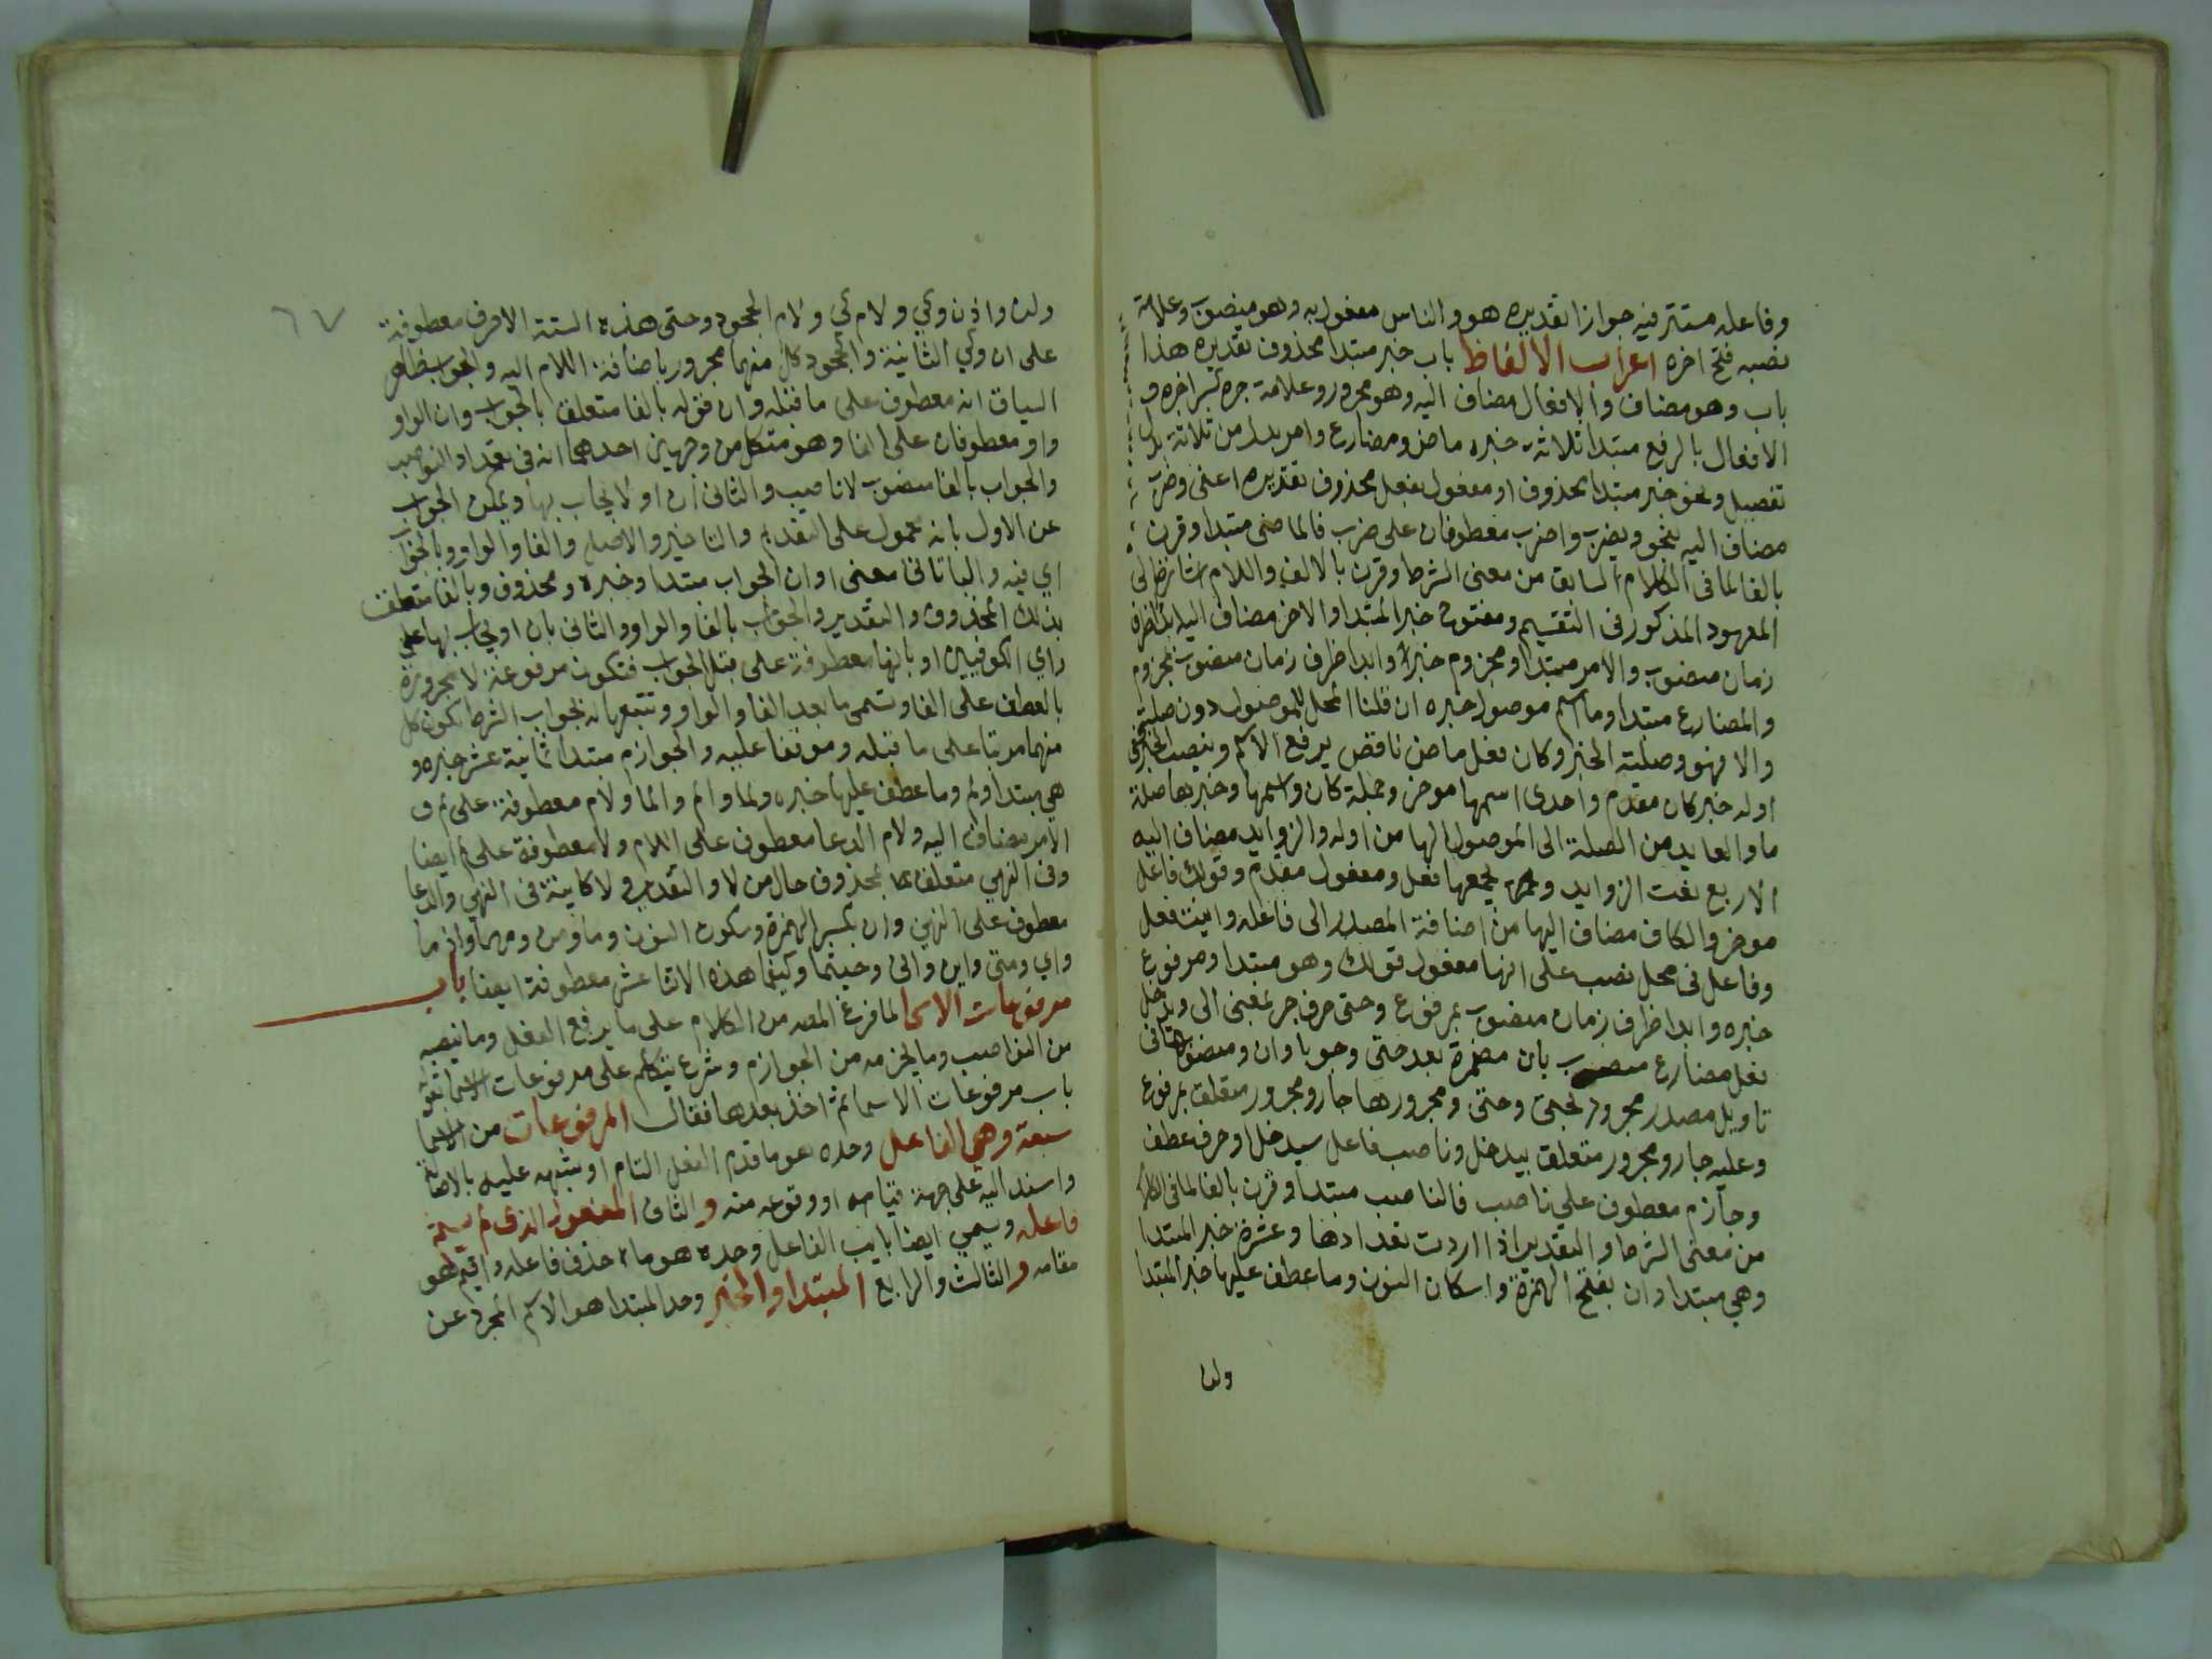 وفاعله مستتر فيه جوازا تقديره هو والناس مفعول به وهو منصوب وعلامة
نصبه فتح اخره اعراب الالفاظ باب خبر مبتدا محذوف تقديره هذا
باب وهو مضاف والافعال مضاف اليه وهو مجرور وعلامة جره كسر اخره و
الافعال بالرفع مبتدا ثلاثة خبره ماض ومضارع وامر بدل من ثلاثة بدل
تفصيل ونحو خبر مبتدا محذوف او مفعول بفعل محذوف تقديره اعنى وضرب
مضاف اليه نحو ويضرب واضرب معطوفان على ضرب فالماضى مبتدا وقرن
بالفا لما فى الكلام السابق من معنى الشرط وقرن بالالف واللام اشارة الى
المعهود المذكور فى التقسيم ومفتوح خبر المبتدا والاخر مضاف اليه ابدا ظرف
زمان منصوب والامر مبتدا ومجزوم خبره وابدا ظرف زمان منصوب بمجزوم
والمضارع مبتدا وما اسم موصول خبره ان قلنا المحل للموصول دون صلته
والا فهو وصلته الخبر وكان فعل ماض ناقص يرفع الاسم وينصب الخبر فى
اوله خبر كان مقدم واحدى اسمها موخر وجملة كان واسمها وخبرها صلة
ما والعايد من الصلة الى الموصول الها من اوله والزوايد مضاف اليه
الاربع نعت الزوايد يجمعها فعل ومفعول مقدم وقولك فاعل
موخر والكاف مضاف اليها من اضافة المصدر الى فاعله وانيت فعل
وفاعل فى محل نصب على انها مفعول قولك وهو مبتدا ومرفوع
خبره وابدا ظرف زمان منصوب بمرفوع وحتى حرف جر بمعنى الى ويدخل
فعل مضارع منصوب بان مضمرة بعد حتى وجوبا وان ومنصوبها فى
تاويل مصدر مجرور بحتى وحتى ومجرورها جار ومجرور متعلق بمرفوع
وعليه جار ومجرور متعلق بيدخل وناصب فاعل بيدخل او حرف عطف
وجازم معطوف على ناصب فالناصب مبتدا وقرن بالفا لما فى الكلام
من معنى الشرط والتقدير اذا اردت تعدادها وعشرة خبر المبتدا
وهى مبتدا وان بفتح الهمزة واسكان النون وما عطف عليها خبر المبتدا
ولن
٦٧
ولن واذن وكي ولام كي ولام الجحود وحتى هذه الستة الاحرف معطوفة
على ان وكي الثانية والجحود كل منهما مجرور باضافة اللام اليه والجواب ظاهر
السياق انه معطوف على ما قبله وان قوله بالفا متعلق بالجواب وان الواو
واو معطوفان على الفا وهو مشكل من وجهين احدهما انه فى تعداد النواصب
والجواب بالفا منصوب لا ناصب والثانى ان او لا يجاب بها ويمكن الجواب
عن الاول بانه محمول على التقديم والتاخير والاصل والفا والواو وبالجواب
اي فيه والبا تاتى بمعنى او ان الجواب مبتدا وخبره ومحذوف وبالفا متعلق
بذلك المحذوف والتقدير والجواب بالفا والواو والثانى بان او يجاب بها على
راي الكوفيين او بانها معطوفة على قبل الجواب فتكون مرفوعة لا مجرورة
بالعطف على الفا وسمى ما بعد الفا والواو وتشبيها له بجواب الشرط لكون كل
منهما مرتبا على ما قبله ومتوقفا عليه والجوازم مبتدا ثمانية عشر خبره و
هي مبتدا ولم وما عطف عليها خبره ولما والم والما ولام معطوفة على لم و
الامر مضاف اليه ولام الدعا معطوف على اللام ولا معطوفة على لم ايضا
وفى النهى متعلق بمحذوف حال من لا والتقدير ولا كاينة فى النهى والدعا
معطوف على النهى وان بكسر الهمزة وسكون النون وما ومن ومهما واذ ما
واي ومتى واين وانى وحيثما وكيفما هذه الاثنا عشر معطوفة ايضا باب
مرفوعات الاسما لما فرغ المصه من الكلام على ما يرفع الفعل وما ينصبه
من النواصب وما يجزمه من الجوازم وشرع يتكلم على مرفوعات الاسما بقوله
باب مرفوعات الاسما ثم اخذ بعدها فقال المرفوعات من الاسما
سبعة وهى الفاعل وحده هو ما قدم الفعل التام او شبهه عليه بالاصالة
واسند اليه على جهة قيامه او وقوعه منه والثانى المفعول الذى لم يسم
فاعله ويسمي ايضا نايب الفاعل وحده هو ما حذف فاعله واقيم هو
مقامه والثالث والرابع المبتدا والخبر وحد المبتدا هو الاسم المجرد عن